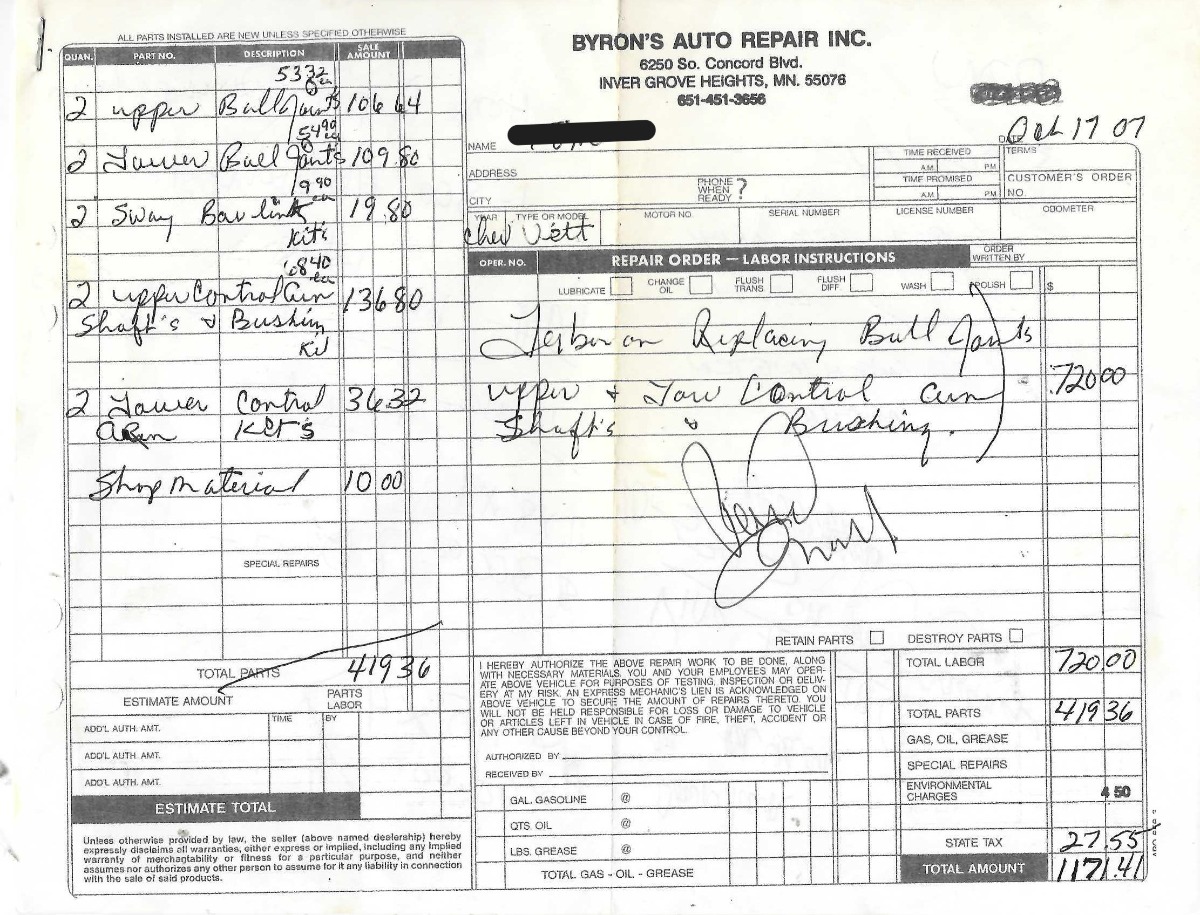 ALL PARTS INSTALLED ARE NEW UNLESS SPECIFIED OTHERWISE
QUAN. PART NO. DESCRIPTION SALE AMOUNT
53 32 ea
2 upper Ball Joints 106 64
54 90 ea
2 Lower Ball Joints 109 80
9 90 ea
2 Sway Bar links 19 80
Kits
68 40 ea
2 upper Control Arm 136 80
Shaft's & Bushing
Kit
2 Lower Control 36 32
Arm Kit's
Shop Material 10 00
SPECIAL REPAIRS
TOTAL PARTS 419 36
ESTIMATE AMOUNT PARTS LABOR
TIME BY
ADD'L AUTH. AMT.
ADD'L AUTH. AMT.
ADD'L AUTH. AMT.
ESTIMATE TOTAL
Unless otherwise provided by law, the seller (above named dealership) hereby
expressly disclaims all warranties, either express or implied, including any implied
warranty of merchagtability or fitness for a particular purpose, and neither
assumes nor authorizes any other person to assume for it any liability in connection
with the sale of said products.
BYRON'S AUTO REPAIR INC.
6250 So. Concord Blvd.
INVER GROVE HEIGHTS, MN. 55076
651-451-3656
DATE Oct 17 07
NAME
TIME RECEIVED AM PM TERMS
ADDRESS
PHONE WHEN READY?
TIME PROMISED AM PM CUSTOMER'S ORDER NO.
CITY
YEAR TYPE OR MODEL MOTOR NO. SERIAL NUMBER LICENSE NUMBER ODOMETER
Chev Vett
OPER. NO. REPAIR ORDER — LABOR INSTRUCTIONS ORDER WRITTEN BY
LUBRICATE CHANGE OIL FLUSH TRANS. FLUSH DIFF. WASH POLISH $
Labor on Replacing Ball Joints
upper & Low Control Arm 720 00
Shaft's & Bushing.
RETAIN PARTS DESTROY PARTS
I HEREBY AUTHORIZE THE ABOVE REPAIR WORK TO BE DONE, ALONG
WITH NECESSARY MATERIALS. YOU AND YOUR EMPLOYEES MAY OPER-
ATE ABOVE VEHICLE FOR PURPOSES OF TESTING, INSPECTION OR DELIV-
ERY AT MY RISK. AN EXPRESS MECHANIC'S LIEN IS ACKNOWLEDGED ON
ABOVE VEHICLE TO SECURE THE AMOUNT OF REPAIRS THERETO. YOU
WILL NOT BE HELD RESPONSIBLE FOR LOSS OR DAMAGE TO VEHICLE
OR ARTICLES LEFT IN VEHICLE IN CASE OF FIRE, THEFT, ACCIDENT OR
ANY OTHER CAUSE BEYOND YOUR CONTROL.
AUTHORIZED BY
RECEIVED BY
GAL. GASOLINE @
QTS. OIL @
LBS. GREASE @
TOTAL GAS - OIL - GREASE
TOTAL LABOR 720.00
TOTAL PARTS 419 36
GAS, OIL, GREASE
SPECIAL REPAIRS
ENVIRONMENTAL CHARGES 4 50
STATE TAX 27.55
TOTAL AMOUNT 1171.41